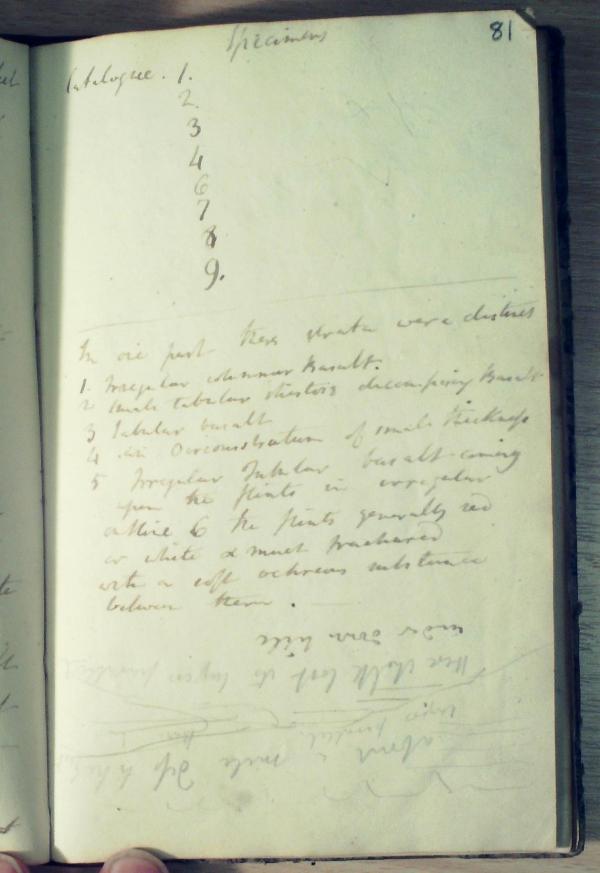 81
Specimens
Catalogue. 1.
2.
3
4
6
7
8
9.
In one part these strata were distinct
1. Irregular columnar Basalt.
2 small tabular decomposing Basalt
3 Tabular basalt
4 an stratum of small thickness
5 Irregular Tabular basalt coming
upon the flints in irregular
outline 6 the flints generally red
or white & much fractured
with a soft ochreous substance
between them.
under hill
Here chalk lost its
about a mile